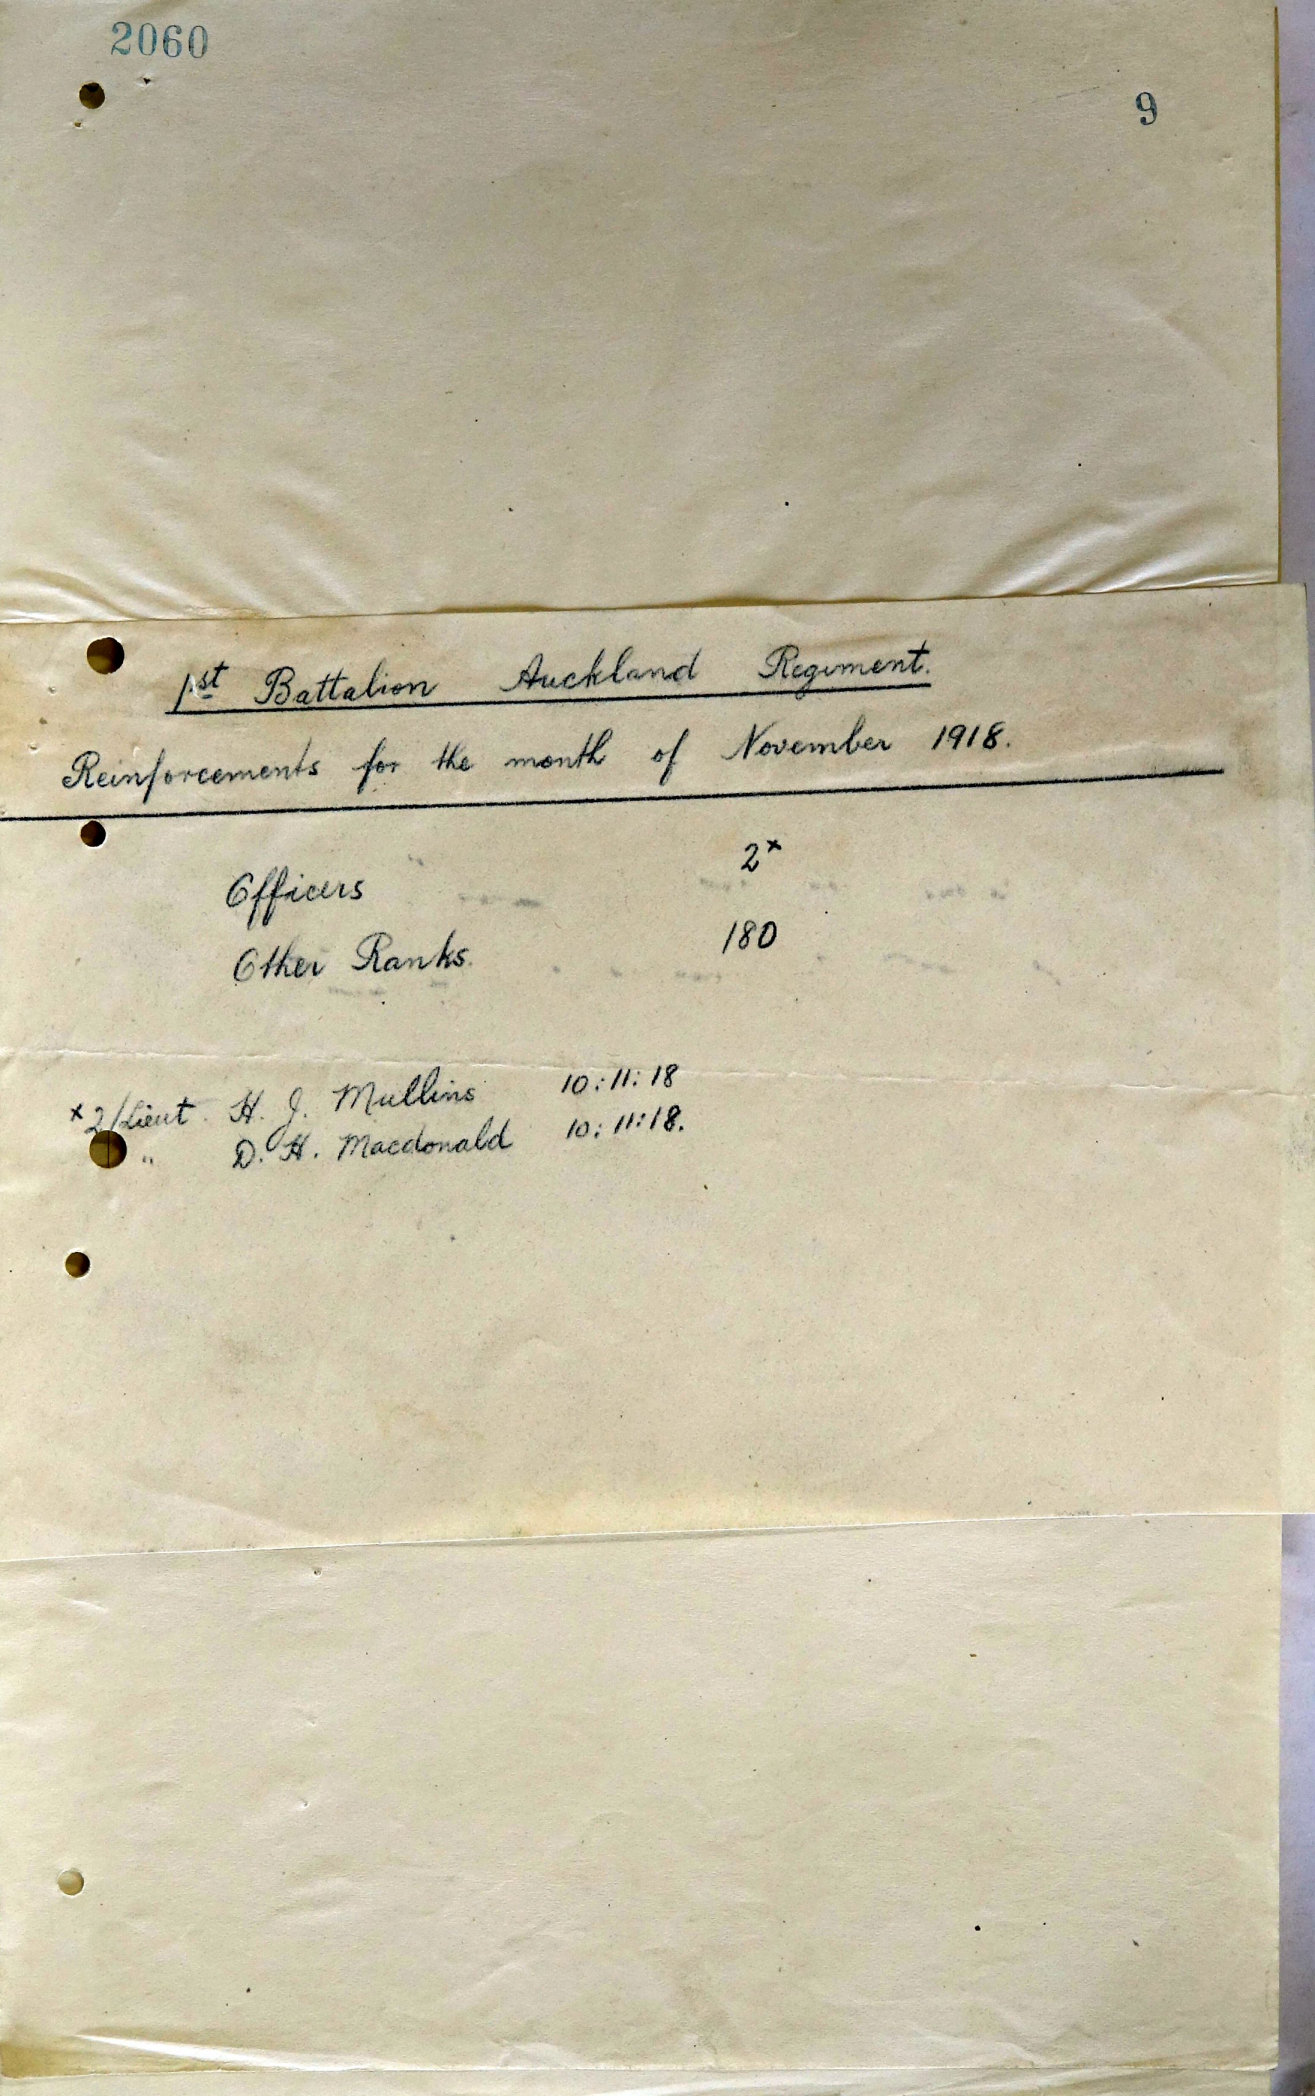 2060
9
1st Battalion Auckland Regiment.
Reinforcements for the month of November 1918.
Officers 2x
Other Ranks. 180
x 2/Lieut. H. J. Mullins 10:11:18
" D. H. Macdonald 10:11:18.